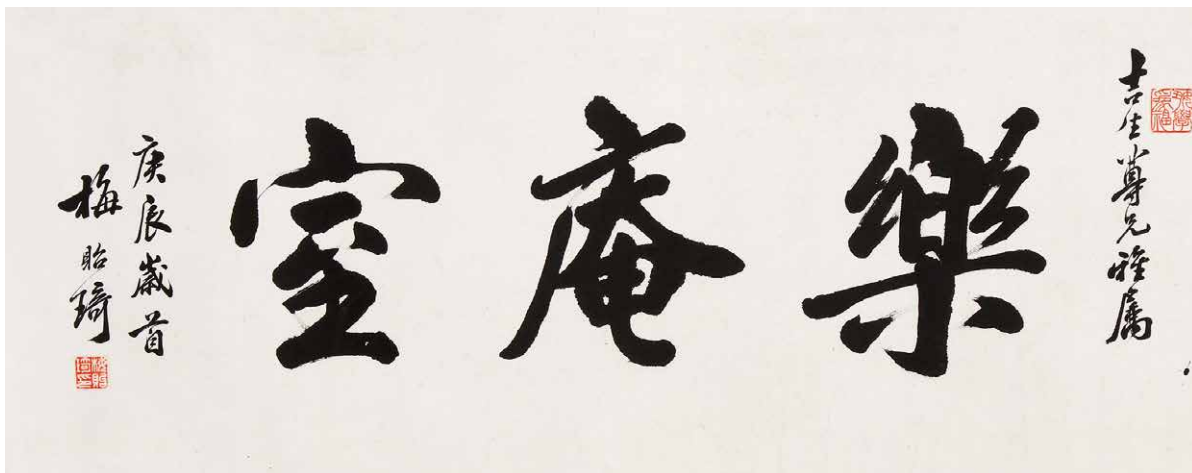 吉生尊兄雅屬
樂庵室
庚辰歲首
梅貽琦